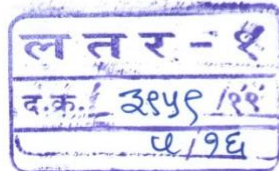 लतर - १
द.क्र. ३९५९ /११
५/१६